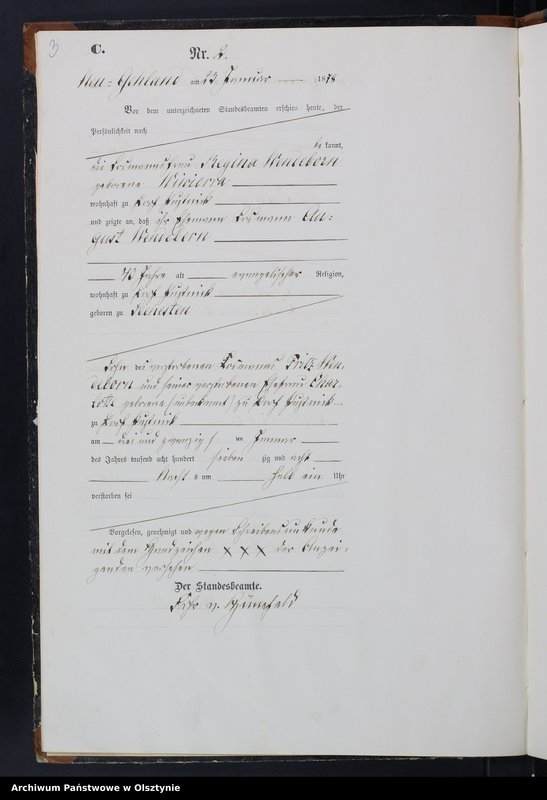 3
C.
Nr. 2.
Neu-Gehland am 23 Januar 1878
Vor dem unterzeichneten Standesbeamten erschien heute, der
Persönlichkeit nach
be kannt,
die Losmannsfrau Regina Wendeborn
geborene
wohnhaft zu Dorf Pustnick
und zeigte an, daß ihr Ehemann Losmann Au=
gust Wendeborn
Jahre alt evangelischer Religion,
wohnhaft zu Dorf Pustnick
geboren zu
Sohn des verstorbenen Losmanns Fritz Wen=
deborn und seiner verstorbenen Ehefrau Char=
lotte geborene (unbekannt) zu Dorf Pustnick
zu Dorf Pustnick
am drei und zwanzig ten Januar
des Jahres tausend acht hundert sieben zig und acht
Nachts um halb ein Uhr
verstorben sei
Vorgelesen, genehmigt und wegen Schreibensunkunde
mit dem Handzeichen x x x der Anzei=
genden versehen
Der Standesbeamte.
Archiwum Państwowe w Olsztynie